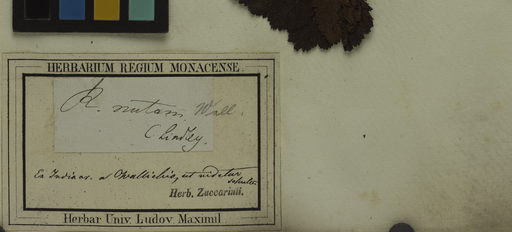 HERBARIUM REGIUM MONACENSE.
R. nutans Wall.
Lindley.
Ex Indiaor. a Wallichio, ut videtur
Herb. Zuccarinii.
Herbar. Univ. Ludov. Maximil.